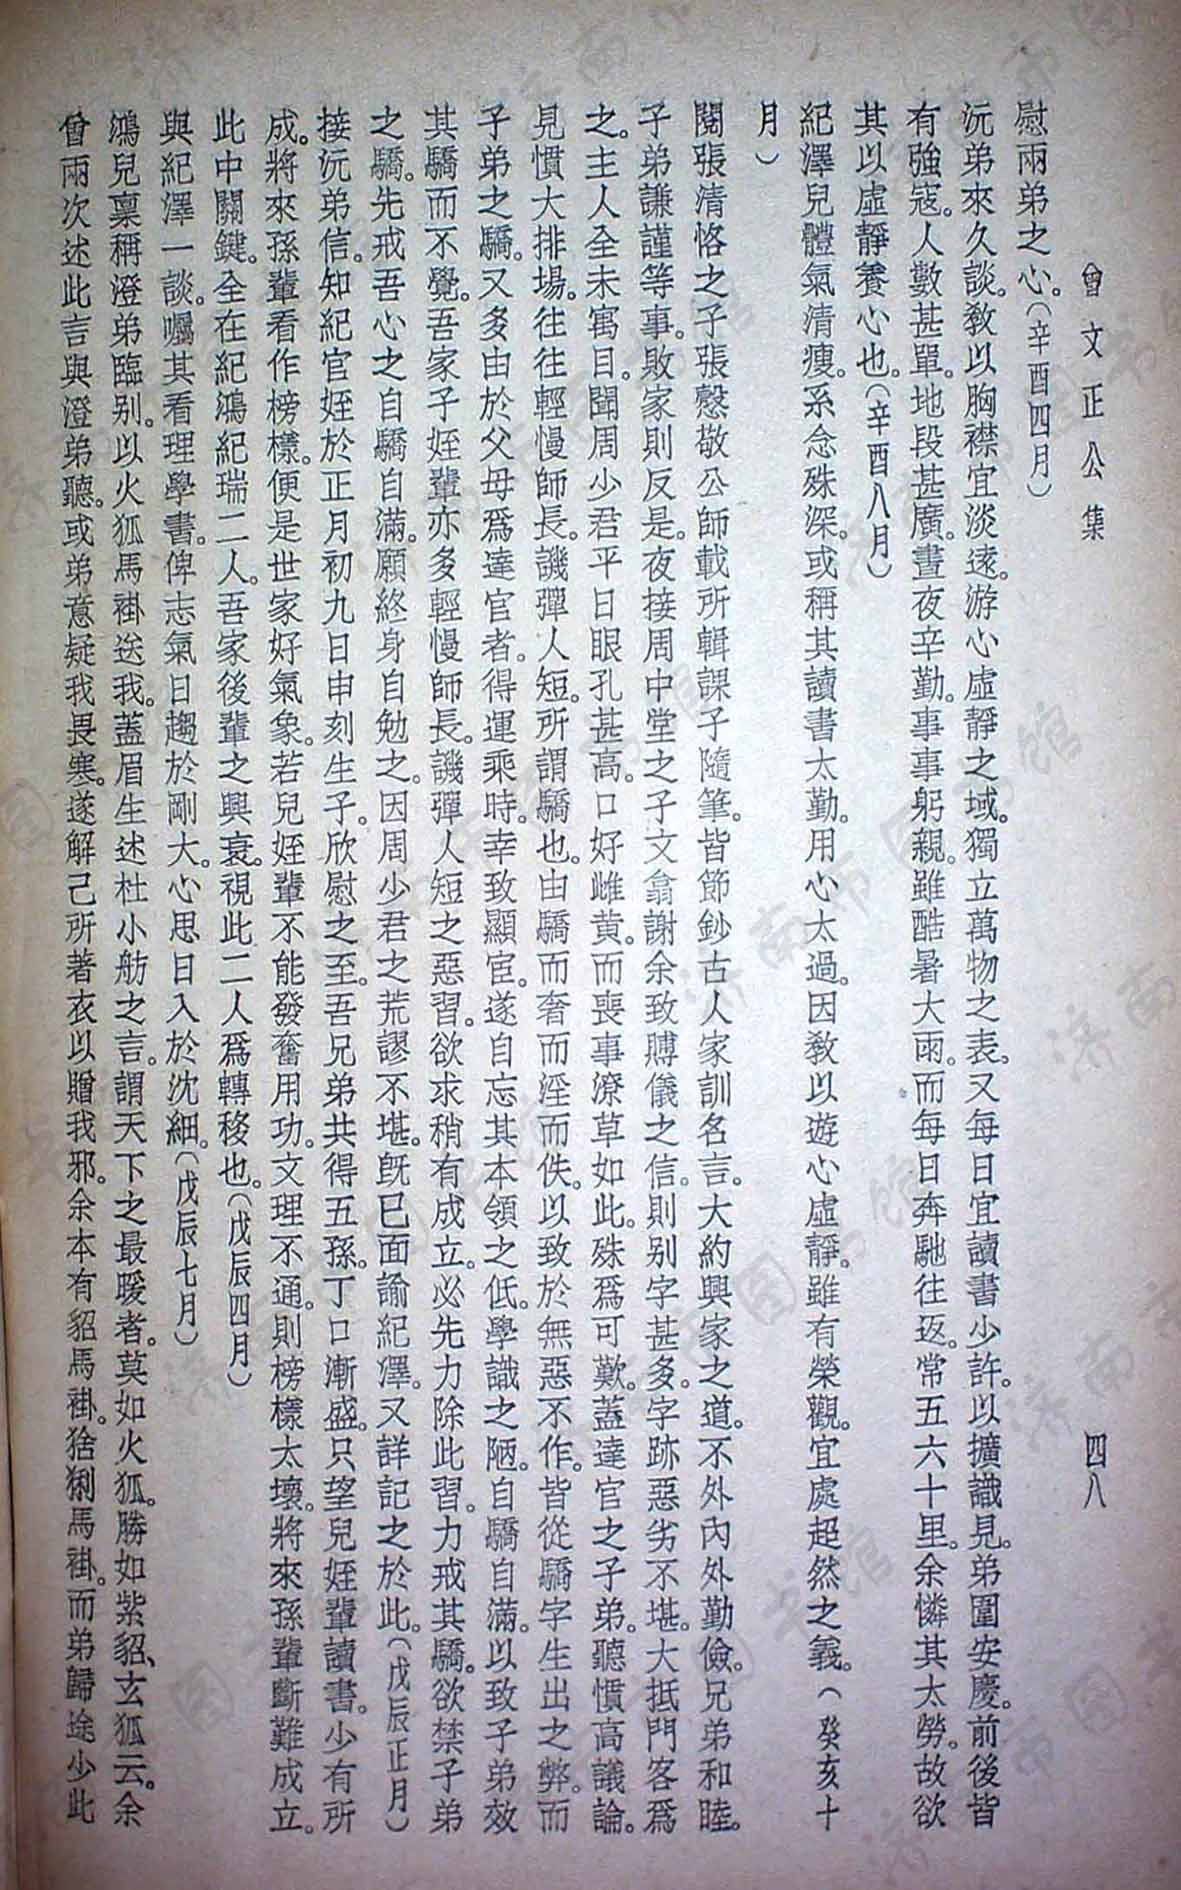 曾文正公集
四八
慰兩弟之心。（辛酉四月）
沅弟來久談。教以胸襟宜淡遠。游心虛靜之域。獨立萬物之表。又每日宜讀書少許。以擴識見。弟圍安慶。前後皆
有強寇。人數甚單。地段甚廣。晝夜辛勤。事事躬親。雖酷暑大雨。而每日奔馳往返。常五六十里。余憐其太勞。故欲
其以虛靜養心也。（辛酉八月）
紀澤兒體氣清瘦。系念殊深。或稱其讀書太勤。用心太過。因教以遊心虛靜。雖有榮觀。宜處超然之義。（癸亥十
月）
閱張清恪之子張慤敬公師載所輯課子隨筆。皆節鈔古人家訓名言。大約興家之道。不外內外勤儉。兄弟和睦。
子弟謙謹等事。敗家則反是。夜接周中堂之子文翕謝余致賻儀之信。則别字甚多。字跡惡劣不堪。大抵門客爲
之。主人全未寓目。聞周少君平日眼孔甚高。口好雌黄。而喪事潦草如此。殊爲可歎。蓋達官之子弟。聽慣高議論。
見慣大排場。往往輕慢師長。譏彈人短。所謂驕也。由驕而奢而淫而佚。以致於無惡不作。皆從驕字生出之弊。而
子弟之驕。又多由於父母爲達官者。得運乘時。幸致顯宦。遂自忘其本領之低。學識之陋。自驕自滿。以致子弟效
其驕而不覺。吾家子姪輩亦多輕慢師長。譏彈人短之惡習。欲求稍有成立。必先力除此習。力戒其驕。欲禁子弟
之驕。先戒吾心之自驕自滿。願終身自勉之。因周少君之荒謬不堪。旣已面諭紀澤。又詳記之於此。（戊辰正月）
接沅弟信。知紀官姪於正月初九日申刻生子。欣慰之至。吾兄弟共得五孫。丁口漸盛。只望兒姪輩讀書。少有所
成。將來孫輩看作榜樣。便是世家好氣象。若兒姪輩不能發奮用功。文理不通。則榜樣太壞。將來孫輩斷難成立。
此中關鍵。全在紀鴻紀瑞二人。吾家後輩之興衰。視此二人爲轉移也。（戊辰四月）
與紀澤一談。囑其看理學書。俾志氣日趨於剛大。心思日入於沈細。（戊辰七月）
鴻兒稟稱澄弟臨别。以火狐馬褂送我。蓋眉生述杜小舫之言。謂天下之最暖者。莫如火狐。勝如紫貂、玄狐云。余
曾兩次述此言與澄弟聽。或弟意疑我畏寒。遂解己所著衣以贈我邪。余本有貂馬褂。猞猁馬褂。而弟歸途少此